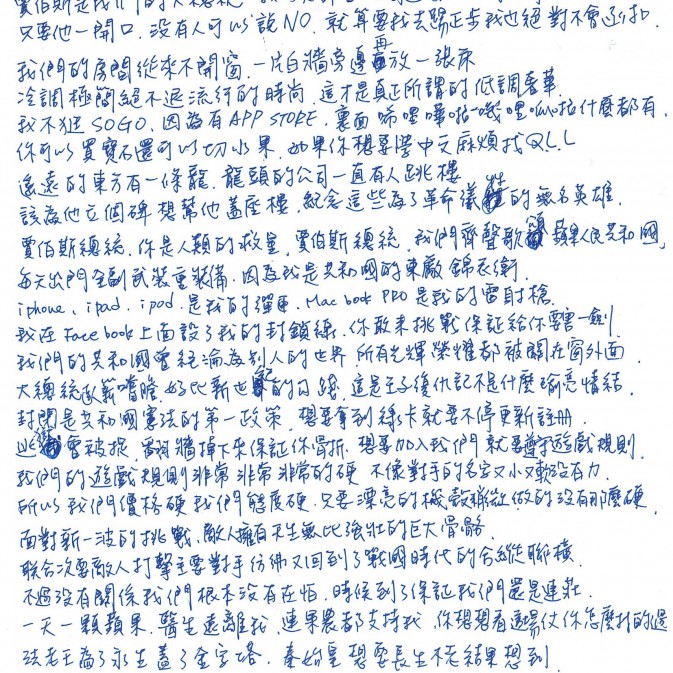 賈伯斯是我們的大總統
只要他一開口,沒有人可以說NO,就算要我去踢正步我也絕對不會漏扣
我們的房間從來不開窗,一片白牆旁邊再放一張床
冷調極簡絕不退流行的時尚,這才是真正所謂的低調奢華
我不逛SOGO,因為有APP STORE,裏面唏哩嘩啦嘰哩呱拉什麼都有,
你可以買寶石還可以切水果,如果你想要學中文麻煩找Q.L.L
遙遠的東方有一條龍,龍頭的公司一直有人跳樓
該為他立個碑想幫他蓋座樓,紀念這些為了革命犧牲的無名英雄.
賈伯斯總統,你是人類的救星,賈伯斯總統,我們齊聲歌頌蘋果人民共和國,
每天出門全副武裝重裝備,因為我是共和國的東廠錦衣衛.
iphone、ipad、ipod.是我的彈匣,Mac book PRO是我的雷射槍.
我在Facebook上面設了我的封鎖線,你敢來挑戰保証給你要害一劍
我們的共和國曾經淪為別人的世界,所有光輝榮耀都被關在窗外面
大總統臥薪嚐膽,好比新世紀的勾踐,這是王子復仇記不是什麼瑜亮情結.
封閉是共和國憲法的第一政策,想要拿到綠卡就要不停更新註冊
逃獄會被捉,翻牆掉下來保証你骨折,想要加入我們就要遵守遊戲規則.
我們的遊戲規則非常非常非常的硬,不像對手的名字又小又軟沒有力.
所以我們價格硬我們態度硬,只要漂亮的機殼雖然做的沒有那麼硬.
面對新一波的挑戰,敵人擁有天生無比強壯的巨大骨骼
聯合次要敵人打擊主要對手仿彿又回到了戰國時代的合縱聯橫.
不過沒有關係我們根本沒有在怕,時候到了保証我們還是連莊.
一天一顆蘋果,醫生遠離我,連果農都支持我,你想想看這場仗你怎麼打的過
法老王為了永生蓋了金字塔,秦始皇想要長生不老結果想到.